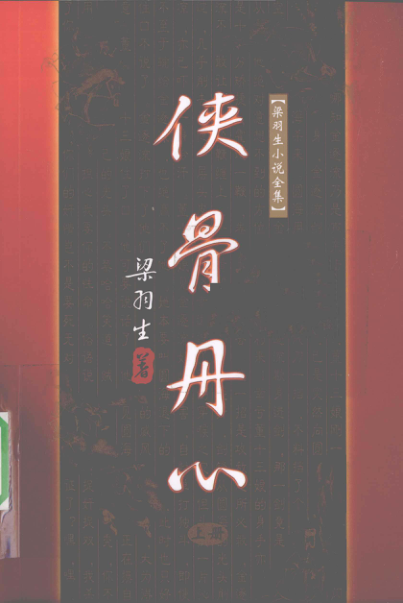 【梁羽生小说全集】
侠骨丹心
梁羽生著
上册